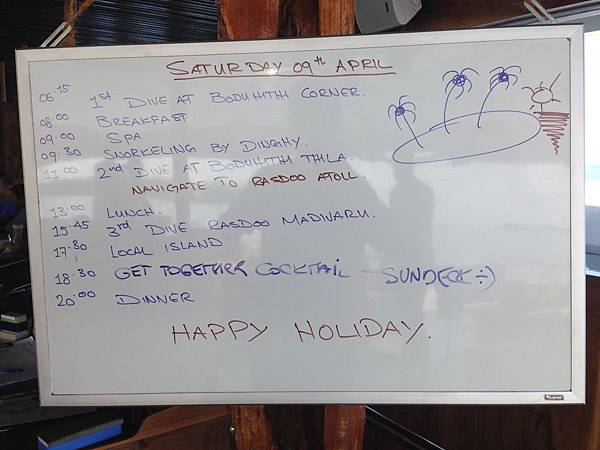 SATURDAY 09th APRIL
06:15 1st DIVE AT BODUHITHI CORNER.
08:00 BREAKFAST.
09:00 SPA.
09:30 SNORKELING BY DINGHY.
11:00 2nd DIVE AT BODUHITHI THILA.
NAVIGATE TO RASDOO ATOLL.
13:00 LUNCH.
15:45 3rd DIVE RASDOO MADIVARU.
17:30 LOCAL ISLAND
18:30 GET TOGETHER COCKTAIL - SUNDECK :)
20:00 DINNER
HAPPY HOLIDAY.